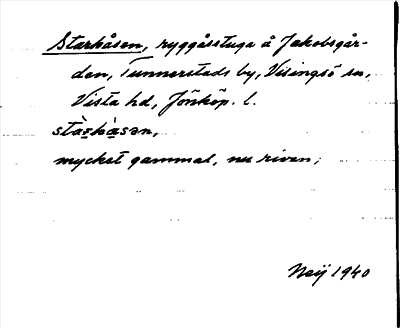 Starkåsen, ryggåsstuga å Jakobsgår-
den, Tunnerstads by, Visingsö sn,
Vista hd, Jönköp. l.
stàrkàsən,
mycket gammal, nu riven;
Neij 1940